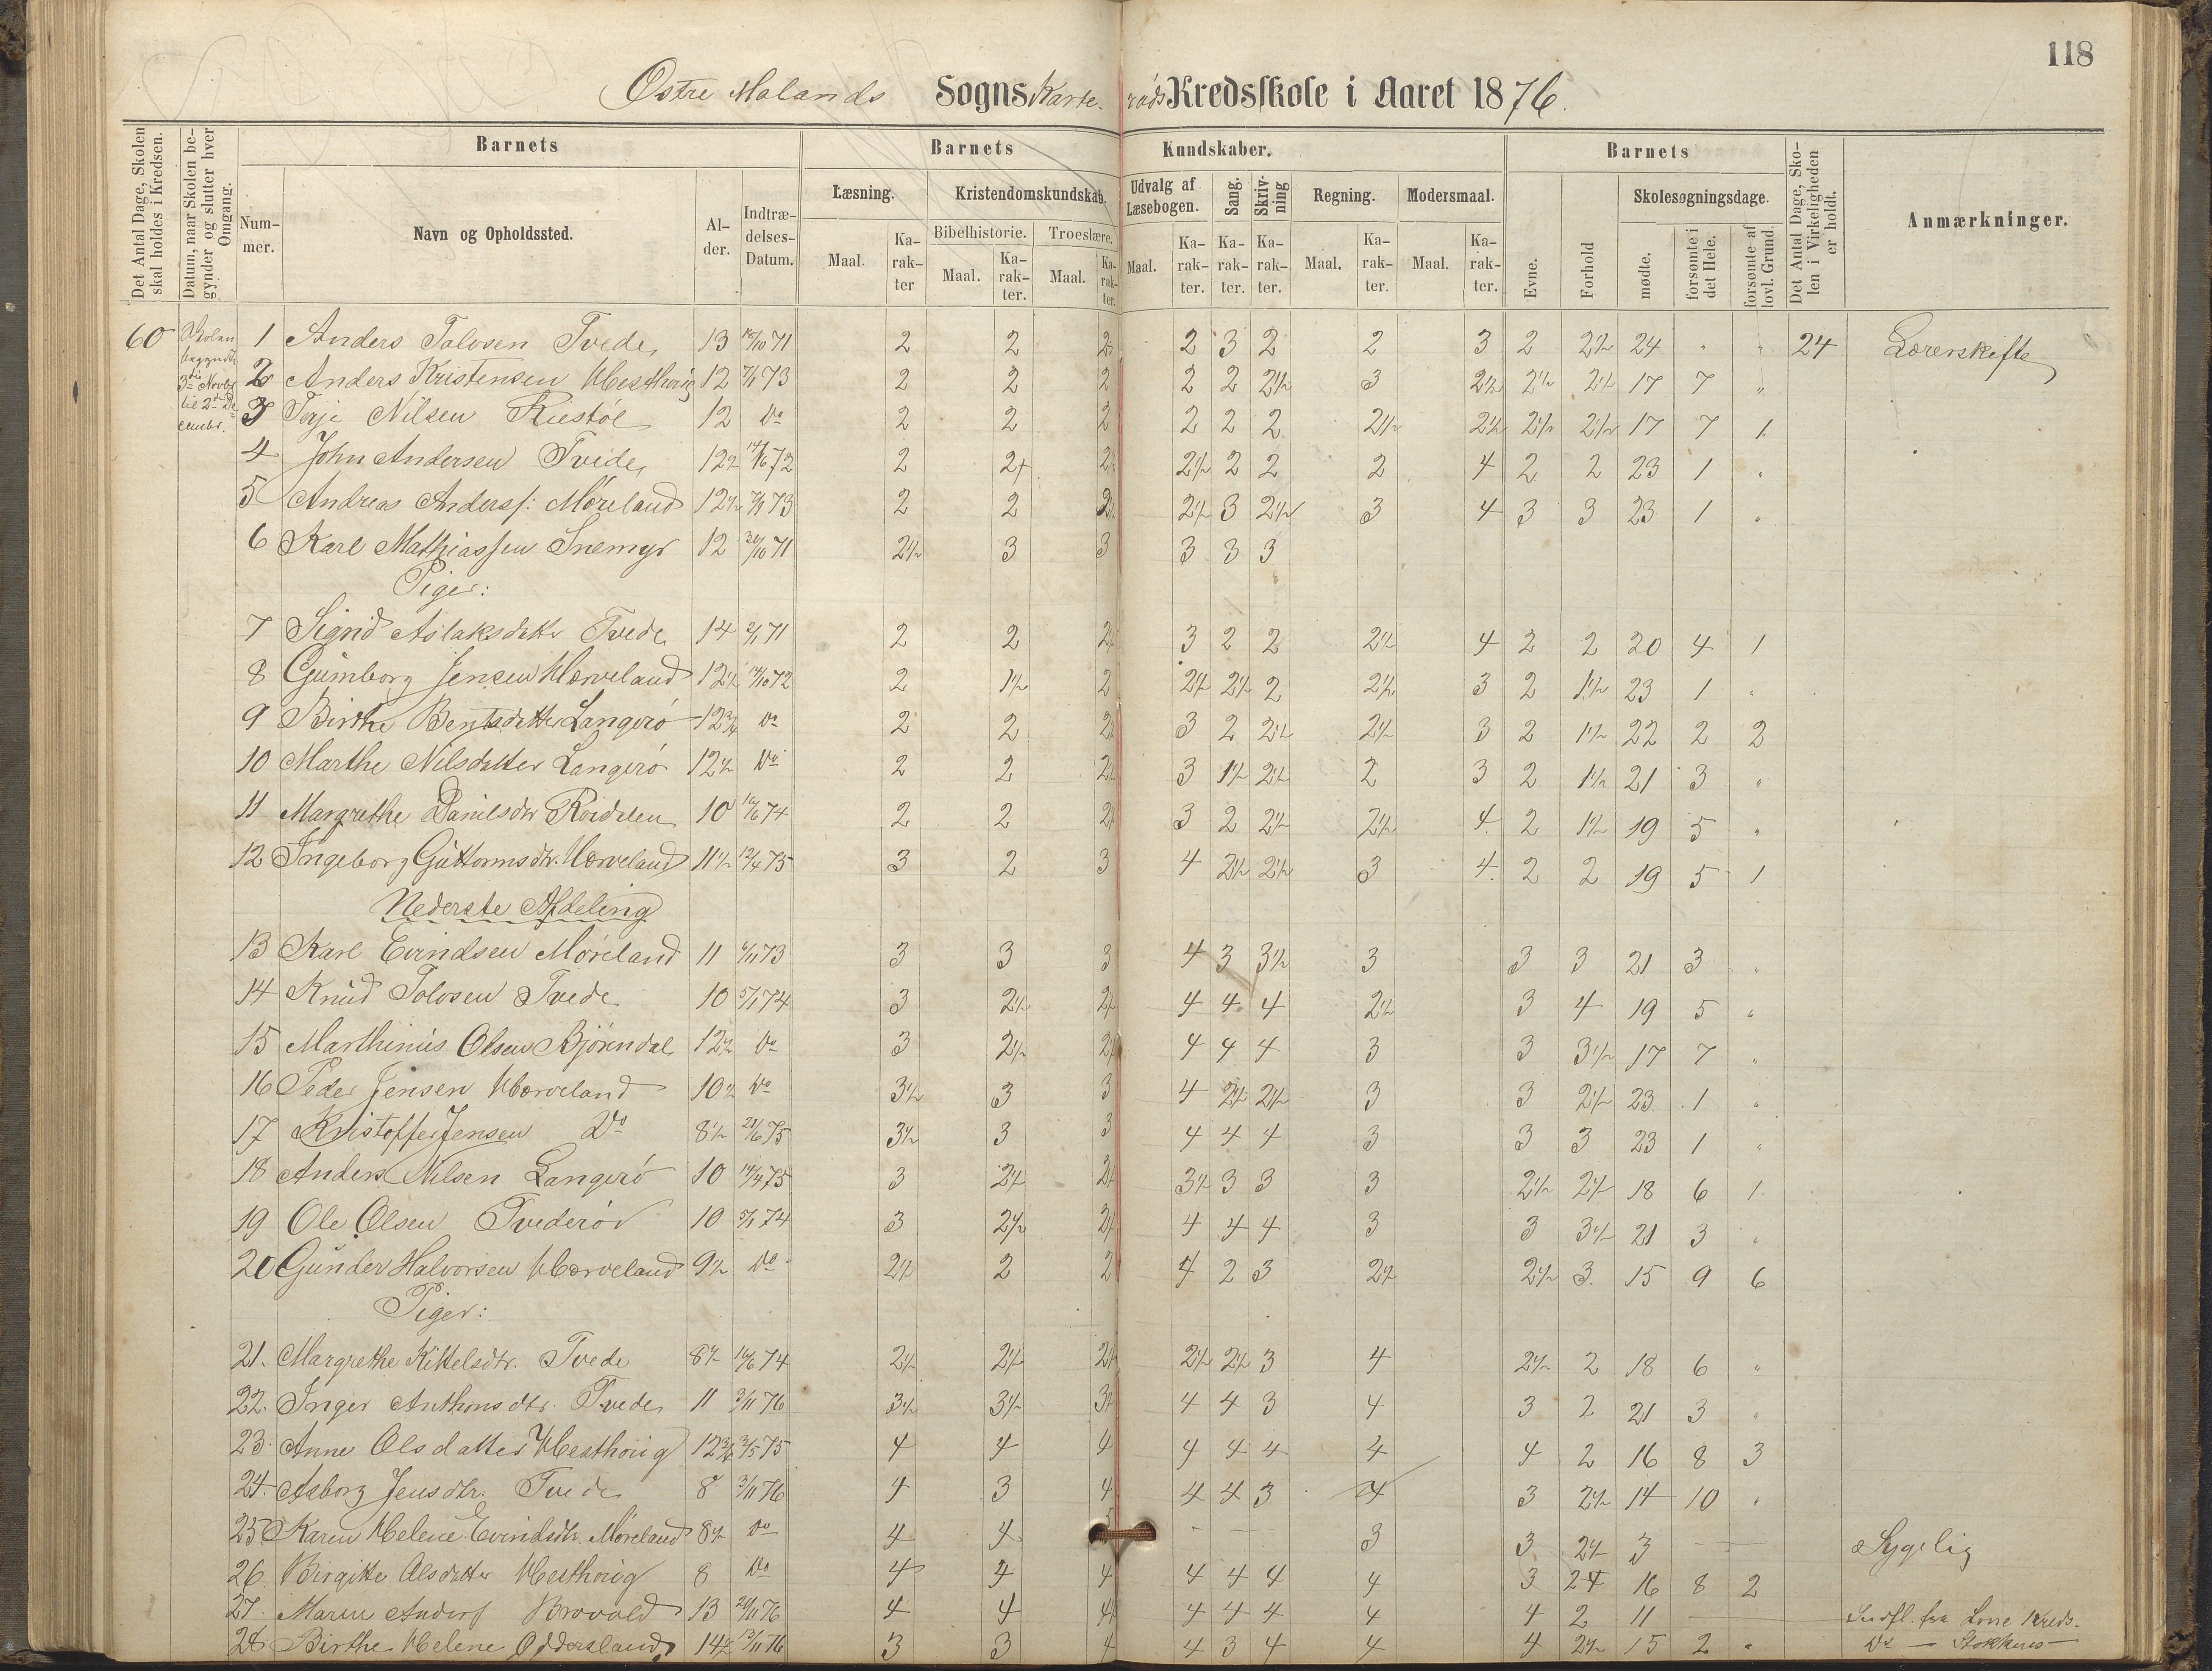 118
Østre Molands Sogns Karte- røds Kredsskole i Aaret 1876.
Det Antal Dage, Skolen skal holdes i Kredsen.
Datum, naar Skolen begynder og slutter hver Omgang.
Barnets
Nummer.
Navn og Opholdssted.
Alder.
Indtrædelses-Datum.
Barnets Kundskaber.
Læsning.
Kristendomskundskab.
Bibelhistorie.
Troeslære.
Udvalg af Læsebogen.
Sang.
Skrivning
Regning.
Modersmaal.
Maal.
Karakter
Barnets
Evne.
Forhold
Skolesøgningsdage.
mødte.
forsømte i det Hele.
forsømte af lovl. Grund.
Det Antal Dage, Skolen i Virkeligheden er holdt.
Anmærkninger.
60 Skolen 1 Anders Talvsen Tvede 13 71 2 2 2 2 3 2 2 3 2 2½ 24 " " 24 Lærerskifte
begyndte 3die Novbr til 2den Decembr.
2 Anders Kristensen Hesthoug 12 73 2 2 2 2 2 2½ 3 2½ 2½ 2½ 17 7 "
3 Terje Nilsen Riestøl 12 Do 2 2 2 2 2 2 2½ 2½ 2½ 2½ 17 7 1
4 John Andersen Tvede 12½ 72 2 2+ 2½ 2½ 2 2 2 4 2 2 23 1 "
5 Andreas Anderss: Møreland 12½ 73 2 2 2½ 2½ 3 2½ 3 4 3 3 23 1 "
6 Karl Mathiassen Snemyr 12 71 2½ 3 3 3 3 3
Piger:
7 Sigrid Aslaksdatter Tvede 14 71 2 2 2½ 3 2 2 2½ 4 2 2 20 4 1
8 Gumborg Jensen Hærveland 12½ 14/10 72 2 1½ 2 2½ 2½ 2 2½ 3 2 1½ 23 1 "
9 Birthe Bentsdatter Langerø 12¾ Do 2 2 2½ 3 2 2½ 2½ 3 2 1½ 22 2 2
10 Marthe Nilsdatter Langerø 12½ Do 2 2 2½ 3 1½ 2½ 2 3 2 1½ 21 3 "
11 Margrethe Danilsdtr Roidalen 10 74 2 2 2½ 3 2 2½ 2½ 4. 2 1½ 19 5 "
12 Ingeborg Guttormsdtr. Hærveland 11½ 12/4 75 3 2 3 4 2½ 2½ 3 4. 2 2 19 5 1
Nederste Afdeling
13 Karl Evindsen Møreland 11 6/11 73 3 3 3 4 3 3½ 3 3 3 21 3 "
14 Knud Tolvsen Tvede 10 5/1 74 3 2½ 2½ 4 4 4 2½ 3 4 19 5 "
15 Marthinius Olsen Bjørndal 12½ Do 3 2½ 2½ 4 4 4 3 3 3½ 17 7 "
16 Peder Jensen Hærveland 10½ Do 3½ 3 3 4 2½ 2½ 3 3 2½ 23 1 "
17 Kristoffer Jensen Do 8½ 21/6 75 3½ 3 3 4 4 4 3 3 3 23 1 "
18 Anders Nilsen Langerø 10 14/4 75 3 2½ 2½ 3½ 3 3 3 2½ 2½ 18 6 1
19 Ole Olsen Tvederød 10 5/1 74 3 2½ 2½ 4 4 4 3 3 3½ 21 3 "
20 Gunder Halvorsen Hærveland 9½ Do 2½ 2 2 4 2 3 2½ 2½ 3. 15 9 6
Piger:
21. Margrethe Kittelsdtr. Tvede 8½ 74 2½ 2½ 2½ 2½ 2½ 3 4 2½ 2 18 6 "
22. Inger Anthonsdtr. Tvede 11 3/11 76 3½ 3½ 3½ 4 4 3 4 3 2 21 3 "
23. Anne Olsdatter Hesthoug 12¾ 3/5 75 4 4 4 4 4 4 4 4 2 16 8 3
24. Asborg Jensdtr. Tvede 8 3/11 76 4 3 4 4 4 3 4 3 2½ 14 10 "
25. Karen Helene Evindsdtr. Møreland 8½ Do 4 4 5 3 3 2½ 3 — Sygelig
26. Birgitte Olsdatter Hesthoug 8 Do 4 4 4 4 4 4 4 3 24 16 8 2
27. Maren Andersf Brovold 13 76 4 4 4 4 4 4 4 4 2 11 — Indfl. fra Lone Kreds.
28 Birthe Helene Oddersland 14½ 13/11 76 3 3 4 4 3 4 4 4 2½ 15 2 " Do — Stokkens —